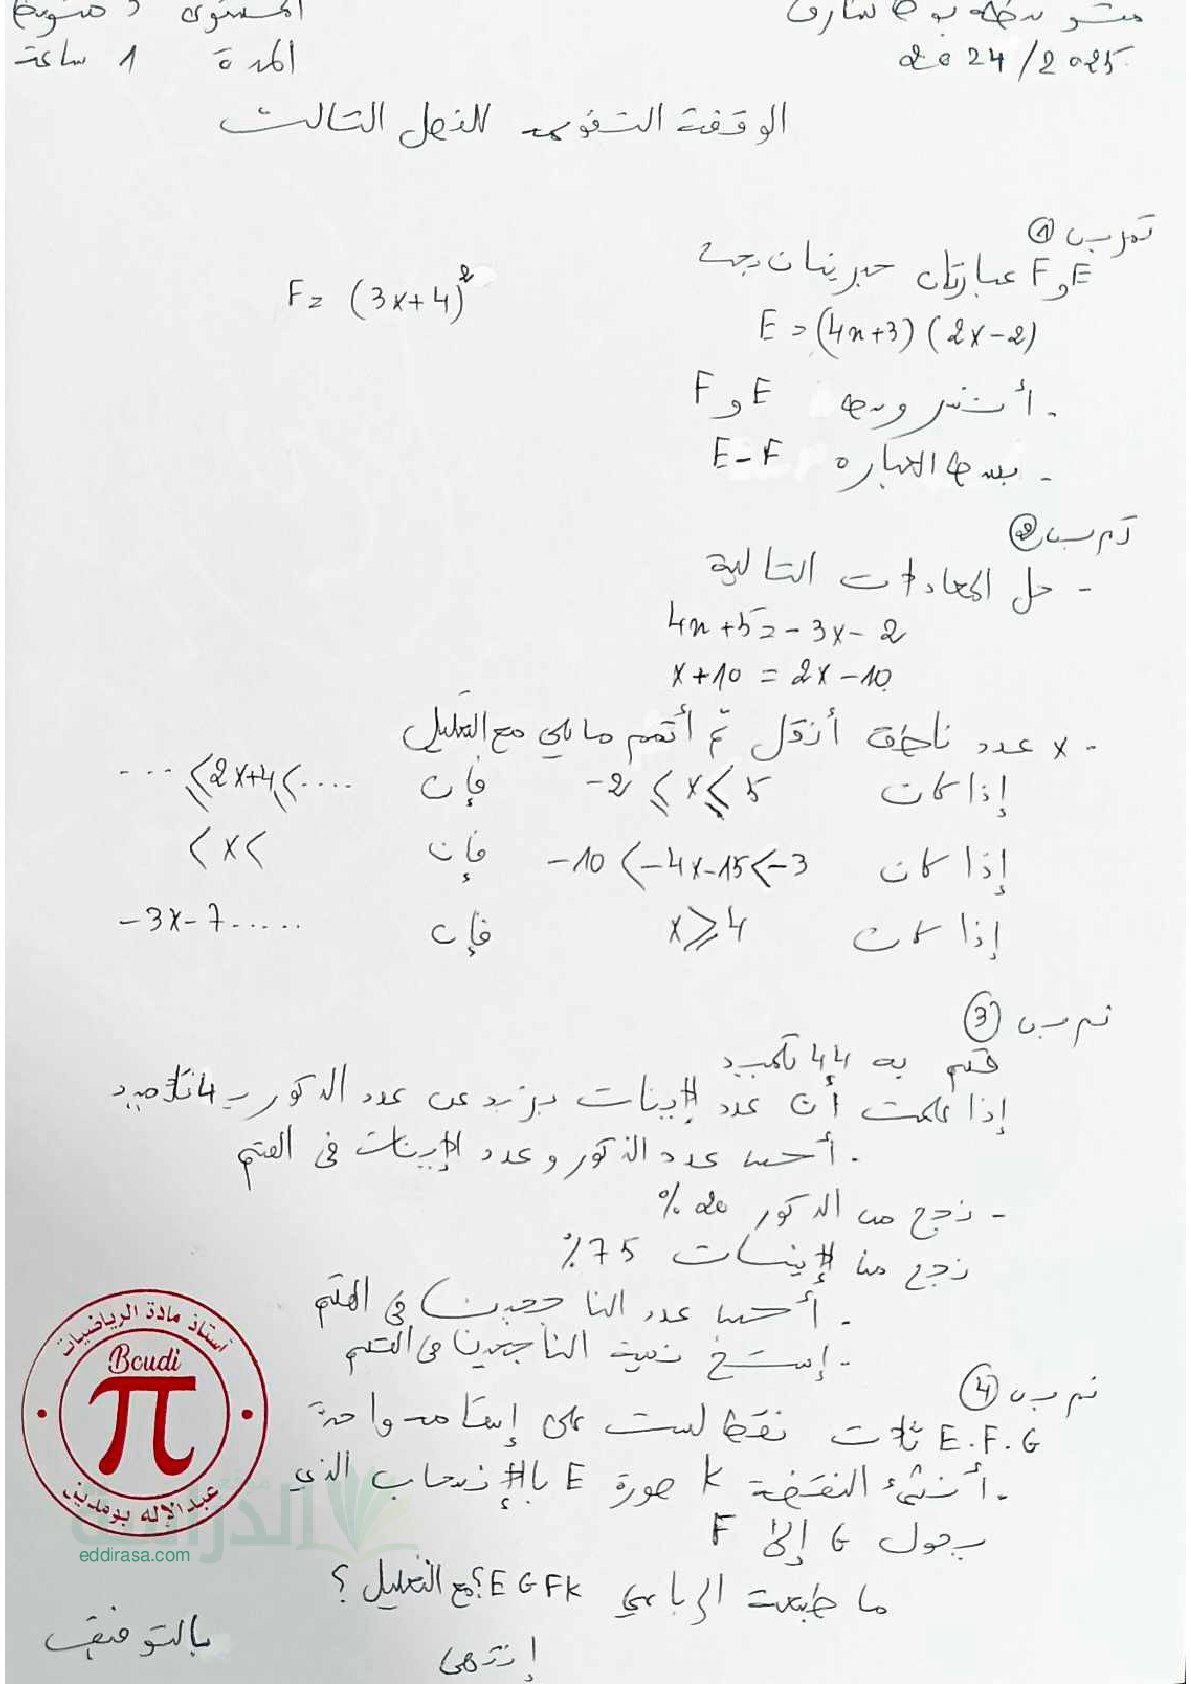 2024/2025
المستوى 3 متوسط
المدة 1 ساعة
الوقفة التقويمية للفصل الثالث
تمرين 1
E و F عبارتان جبريتان حيث
E = (4x+3)(2x-2)
F = (3x+4)²
. أنشر وبسط E و F
- بسط العبارة E-F
تمرين 2
- حل المعادلات التالية
4x+5=-3x-2
x+10 = 2x-10
- x عدد ناطق أنقل ثم أتمم ما يلي مع التعليل
إذا كان -2 ⩽ x ⩽ 5 فإن ....⩽2x+4⩽....
إذا كان -10 < -4x-15 < -3 فإن < x <
إذا كان x ⩾ 4 فإن -3x-7.....
تمرين 3
قسم به 44 تلميذ
إذا علمت أن عدد الإينات يزيد عن عدد الذكور بـ 4 تلاميذ
. أحسب عدد الذكور وعدد الإينات في القسم
- نجح من الذكور 20 %
نجح من الإينات 75 %
. أحسب عدد الناجحين في القسم
. إستنتج نسبة الناجحين في القسم
تمرين 4
E.F.G ثلاث نقط ليست على إستقامة واحدة
. أنشئ النقطة K صورة E بالإنسحاب الذي
يحول G إلى F
ما طبيعة الرباعي EGFK؟ مع التعليل ؟
إنتهى
بالتوفيق
أستاذ مادة الرياضيات
Boudi
π
عبدالإله بومدين
الدراسة
eddirasa.com